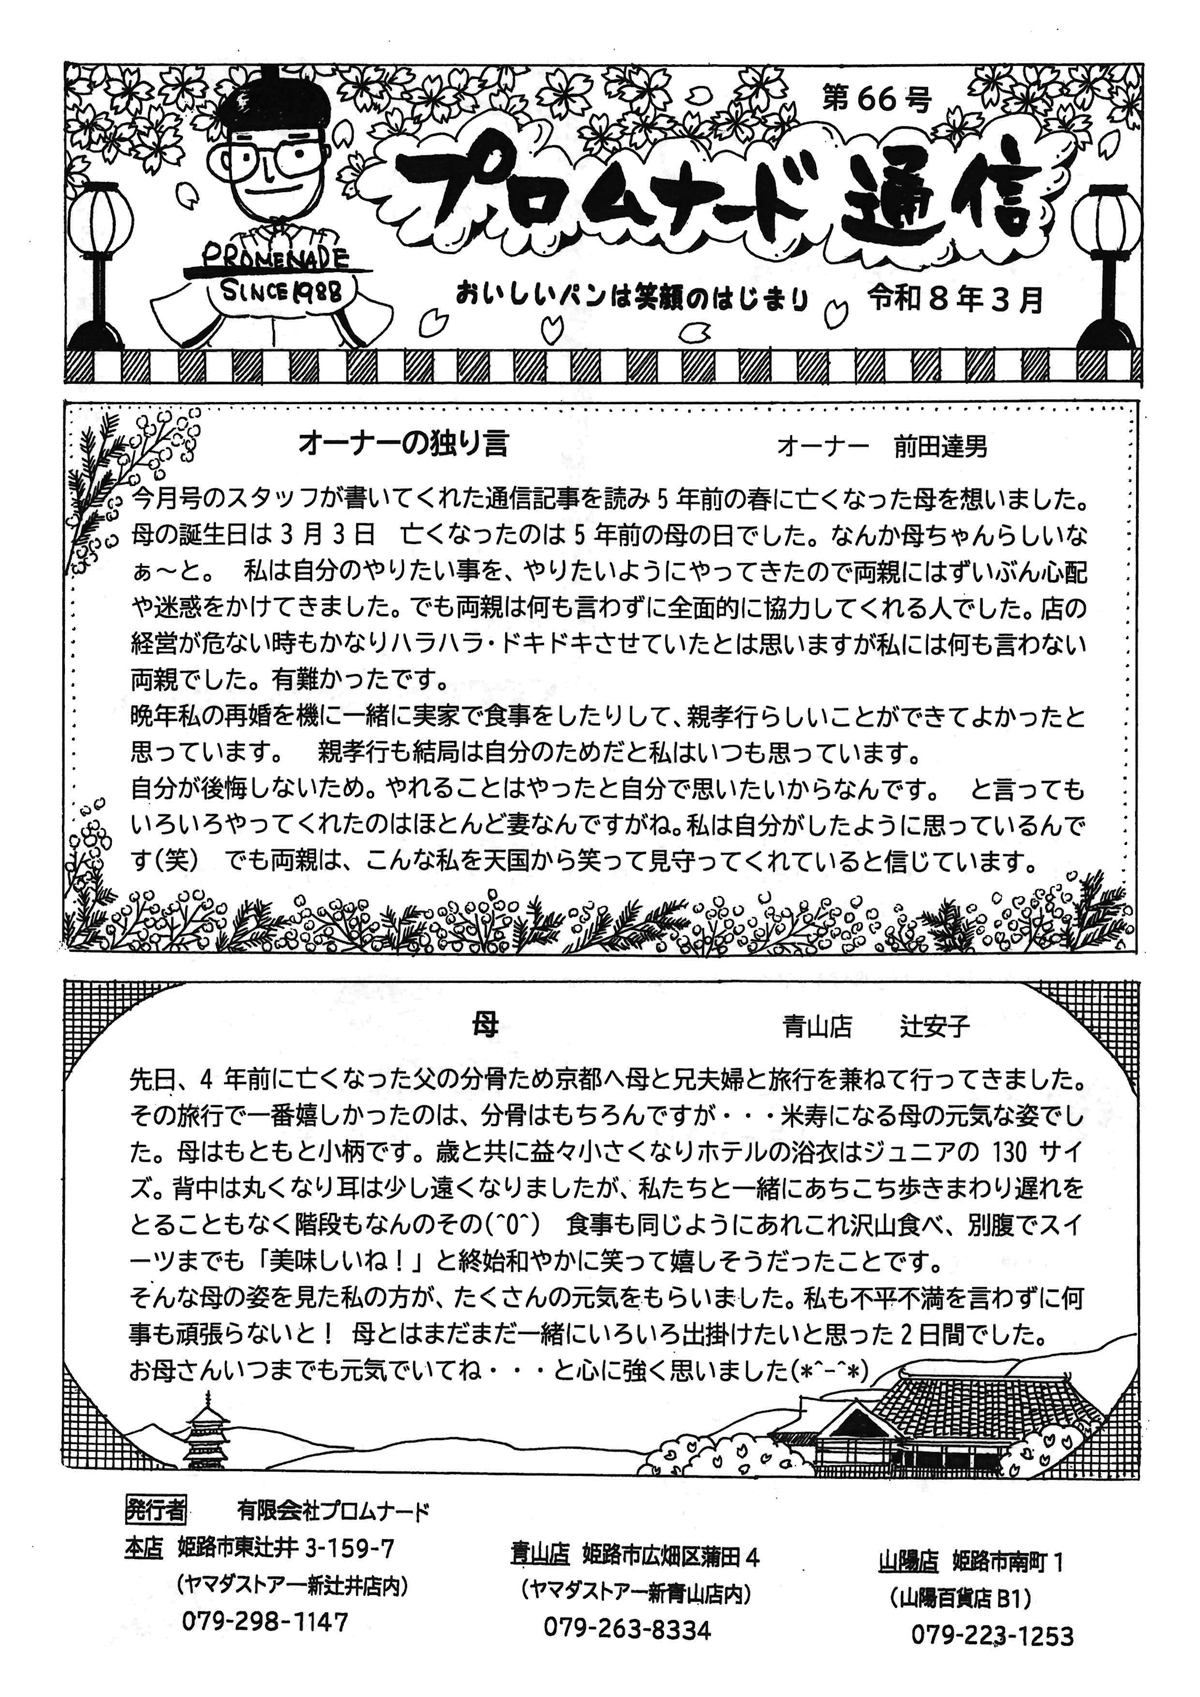 第66号
プロムナード通信
PROMENADE
SINCE1988
おいしいパンは笑顔のはじまり
令和8年3月
オーナーの独り言 オーナー 前田達男
今月号のスタッフが書いてくれた通信記事を読み5年前の春に亡くなった母を想いました。
母の誕生日は3月3日 亡くなったのは5年前の母の日でした。なんか母ちゃんらしいな
ぁ～と。 私は自分のやりたい事を、やりたいようにやってきたので両親にはずいぶん心配
や迷惑をかけてきました。でも両親は何も言わずに全面的に協力してくれる人でした。店の
経営が危ない時もかなりハラハラ・ドキドキさせていたとは思いますが私には何も言わない
両親でした。有難かったです。
晩年私の再婚を機に一緒に実家で食事をしたりして、親孝行らしいことができてよかったと
思っています。 親孝行も結局は自分のためだと私はいつも思っています。
自分が後悔しないため。やれることはやったと自分で思いたいからなんです。 と言っても
いろいろやってくれたのはほとんど妻なんですがね。私は自分がしたように思っているんで
す(笑) でも両親は、こんな私を天国から笑って見守ってくれていると信じています。
母 青山店 辻安子
先日、4年前に亡くなった父の分骨ため京都へ母と兄夫婦と旅行を兼ねて行ってきました。
その旅行で一番嬉しかったのは、分骨はもちろんですが・・・米寿になる母の元気な姿でし
た。母はもともと小柄です。歳と共に益々小さくなりホテルの浴衣はジュニアの130サイ
ズ。背中は丸くなり耳は少し遠くなりましたが、私たちと一緒にあちこち歩きまわり遅れを
とることもなく階段もなんのその(^O^) 食事も同じようにあれこれ沢山食べ、別腹でスイ
ーツまでも「美味しいね！」と終始和やかに笑って嬉しそうだったことです。
そんな母の姿を見た私の方が、たくさんの元気をもらいました。私も不平不満を言わずに何
事も頑張らないと！ 母とはまだまだ一緒にいろいろ出掛けたいと思った2日間でした。
お母さんいつまでも元気でいてね・・・と心に強く思いました(*^-^*)
発行者 有限会社プロムナード
本店 姫路市東辻井3-159-7
(ヤマダストアー新辻井店内)
079-298-1147
青山店 姫路市広畑区蒲田4
(ヤマダストアー新青山店内)
079-263-8334
山陽店 姫路市南町1
(山陽百貨店B1)
079-223-1253